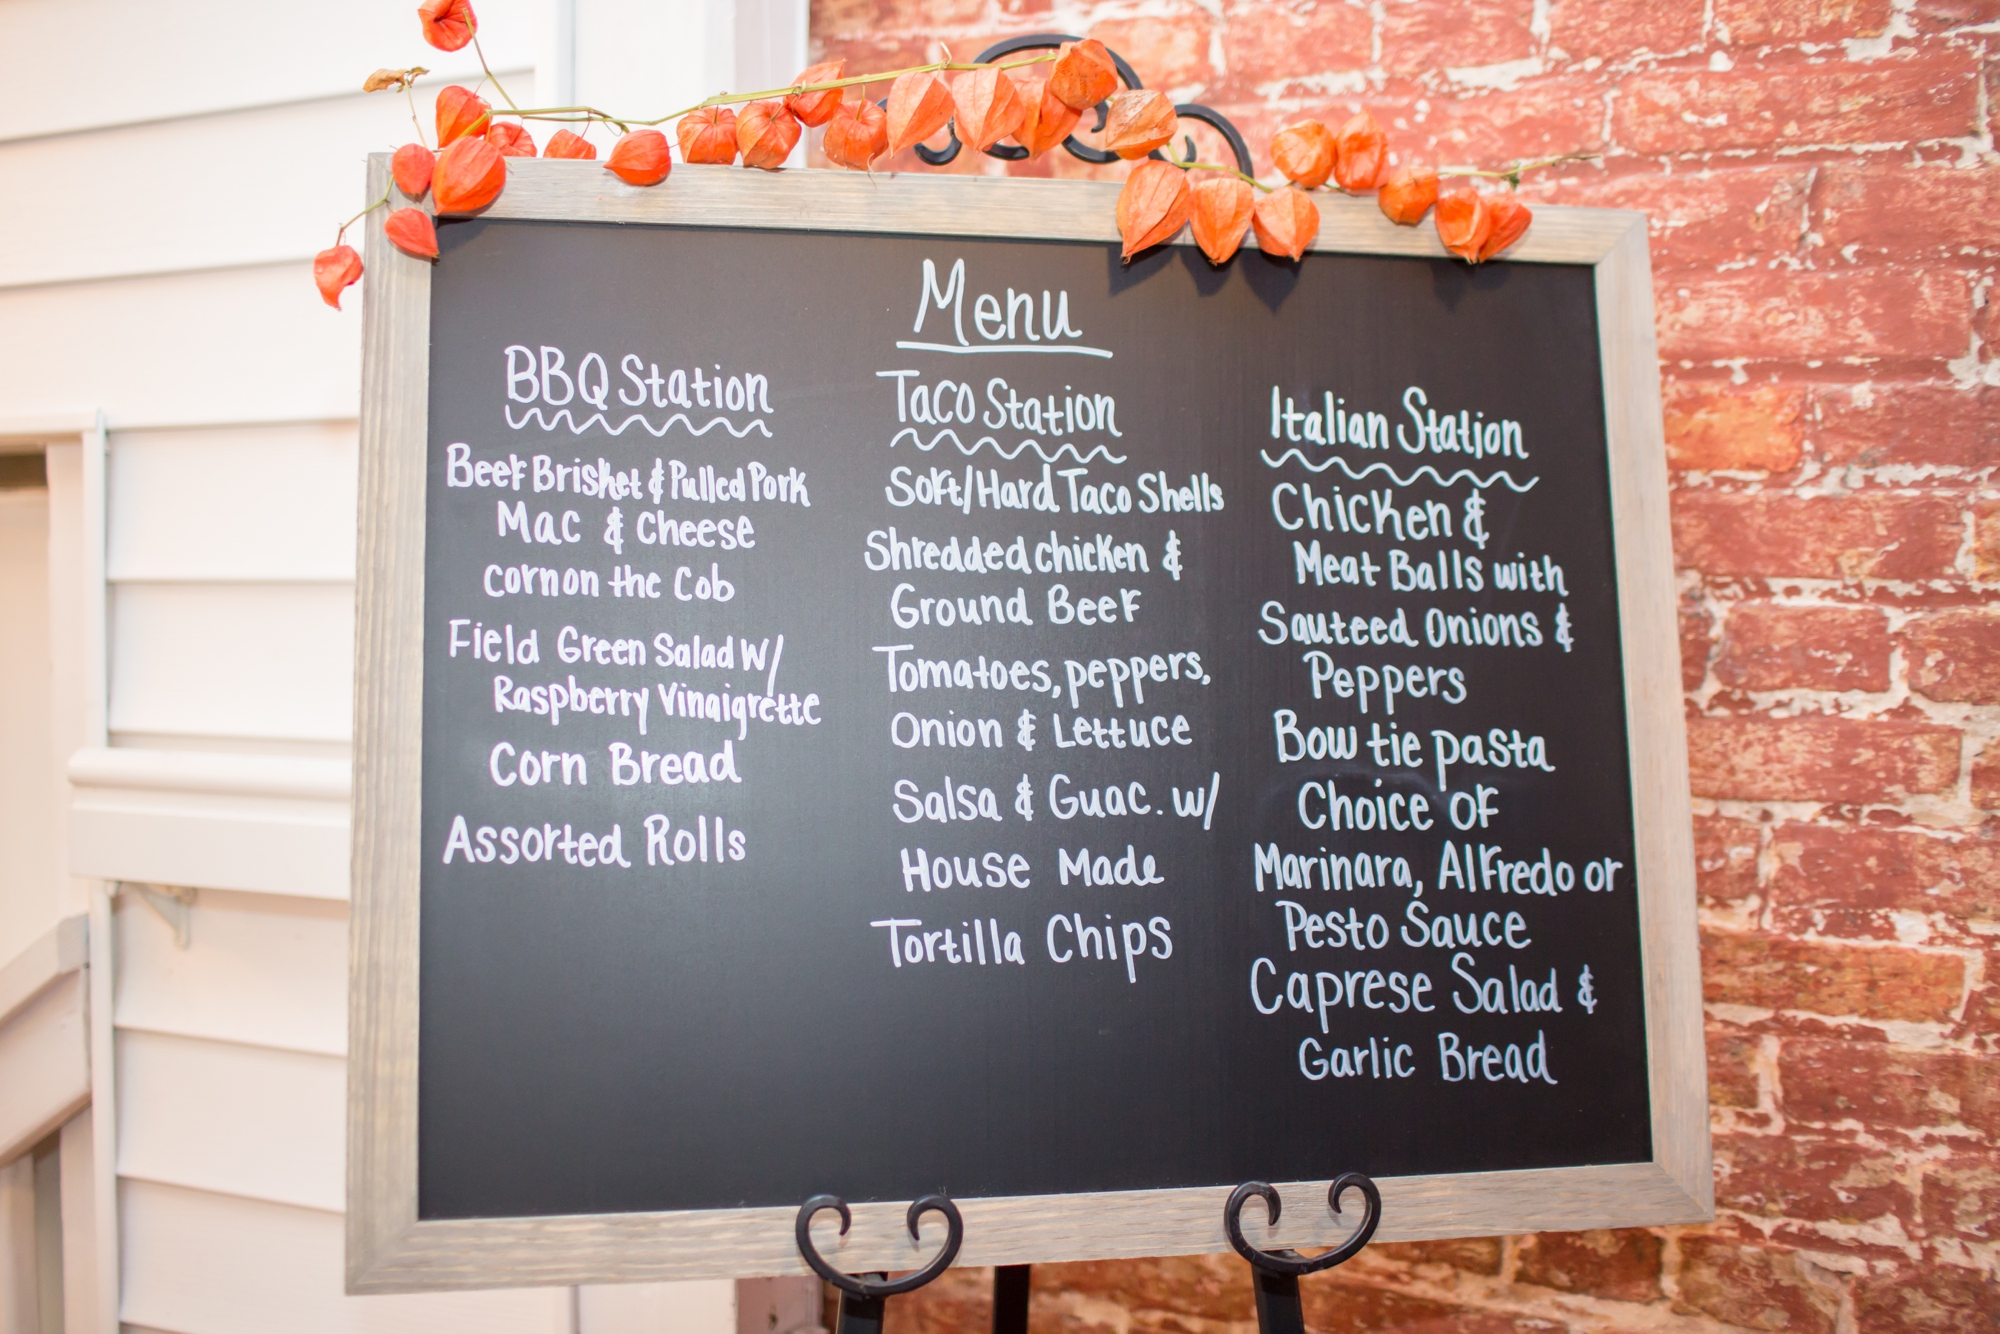 Menu
BBQ Station
Beef Brisket & Pulled Pork
Mac & Cheese
corn on the Cob
Field Green Salad w/
Raspberry Vinaigrette
Corn Bread
Assorted Rolls
Taco Station
Soft/Hard Taco Shells
Shredded chicken &
Ground Beef
Tomatoes, peppers,
Onion & Lettuce
Salsa & Guac. w/
House Made
Tortilla Chips
Italian Station
Chicken &
Meat Balls with
Sauteed Onions &
Peppers
Bow tie pasta
Choice of
Marinara, Alfredo or
Pesto Sauce
Caprese Salad &
Garlic Bread